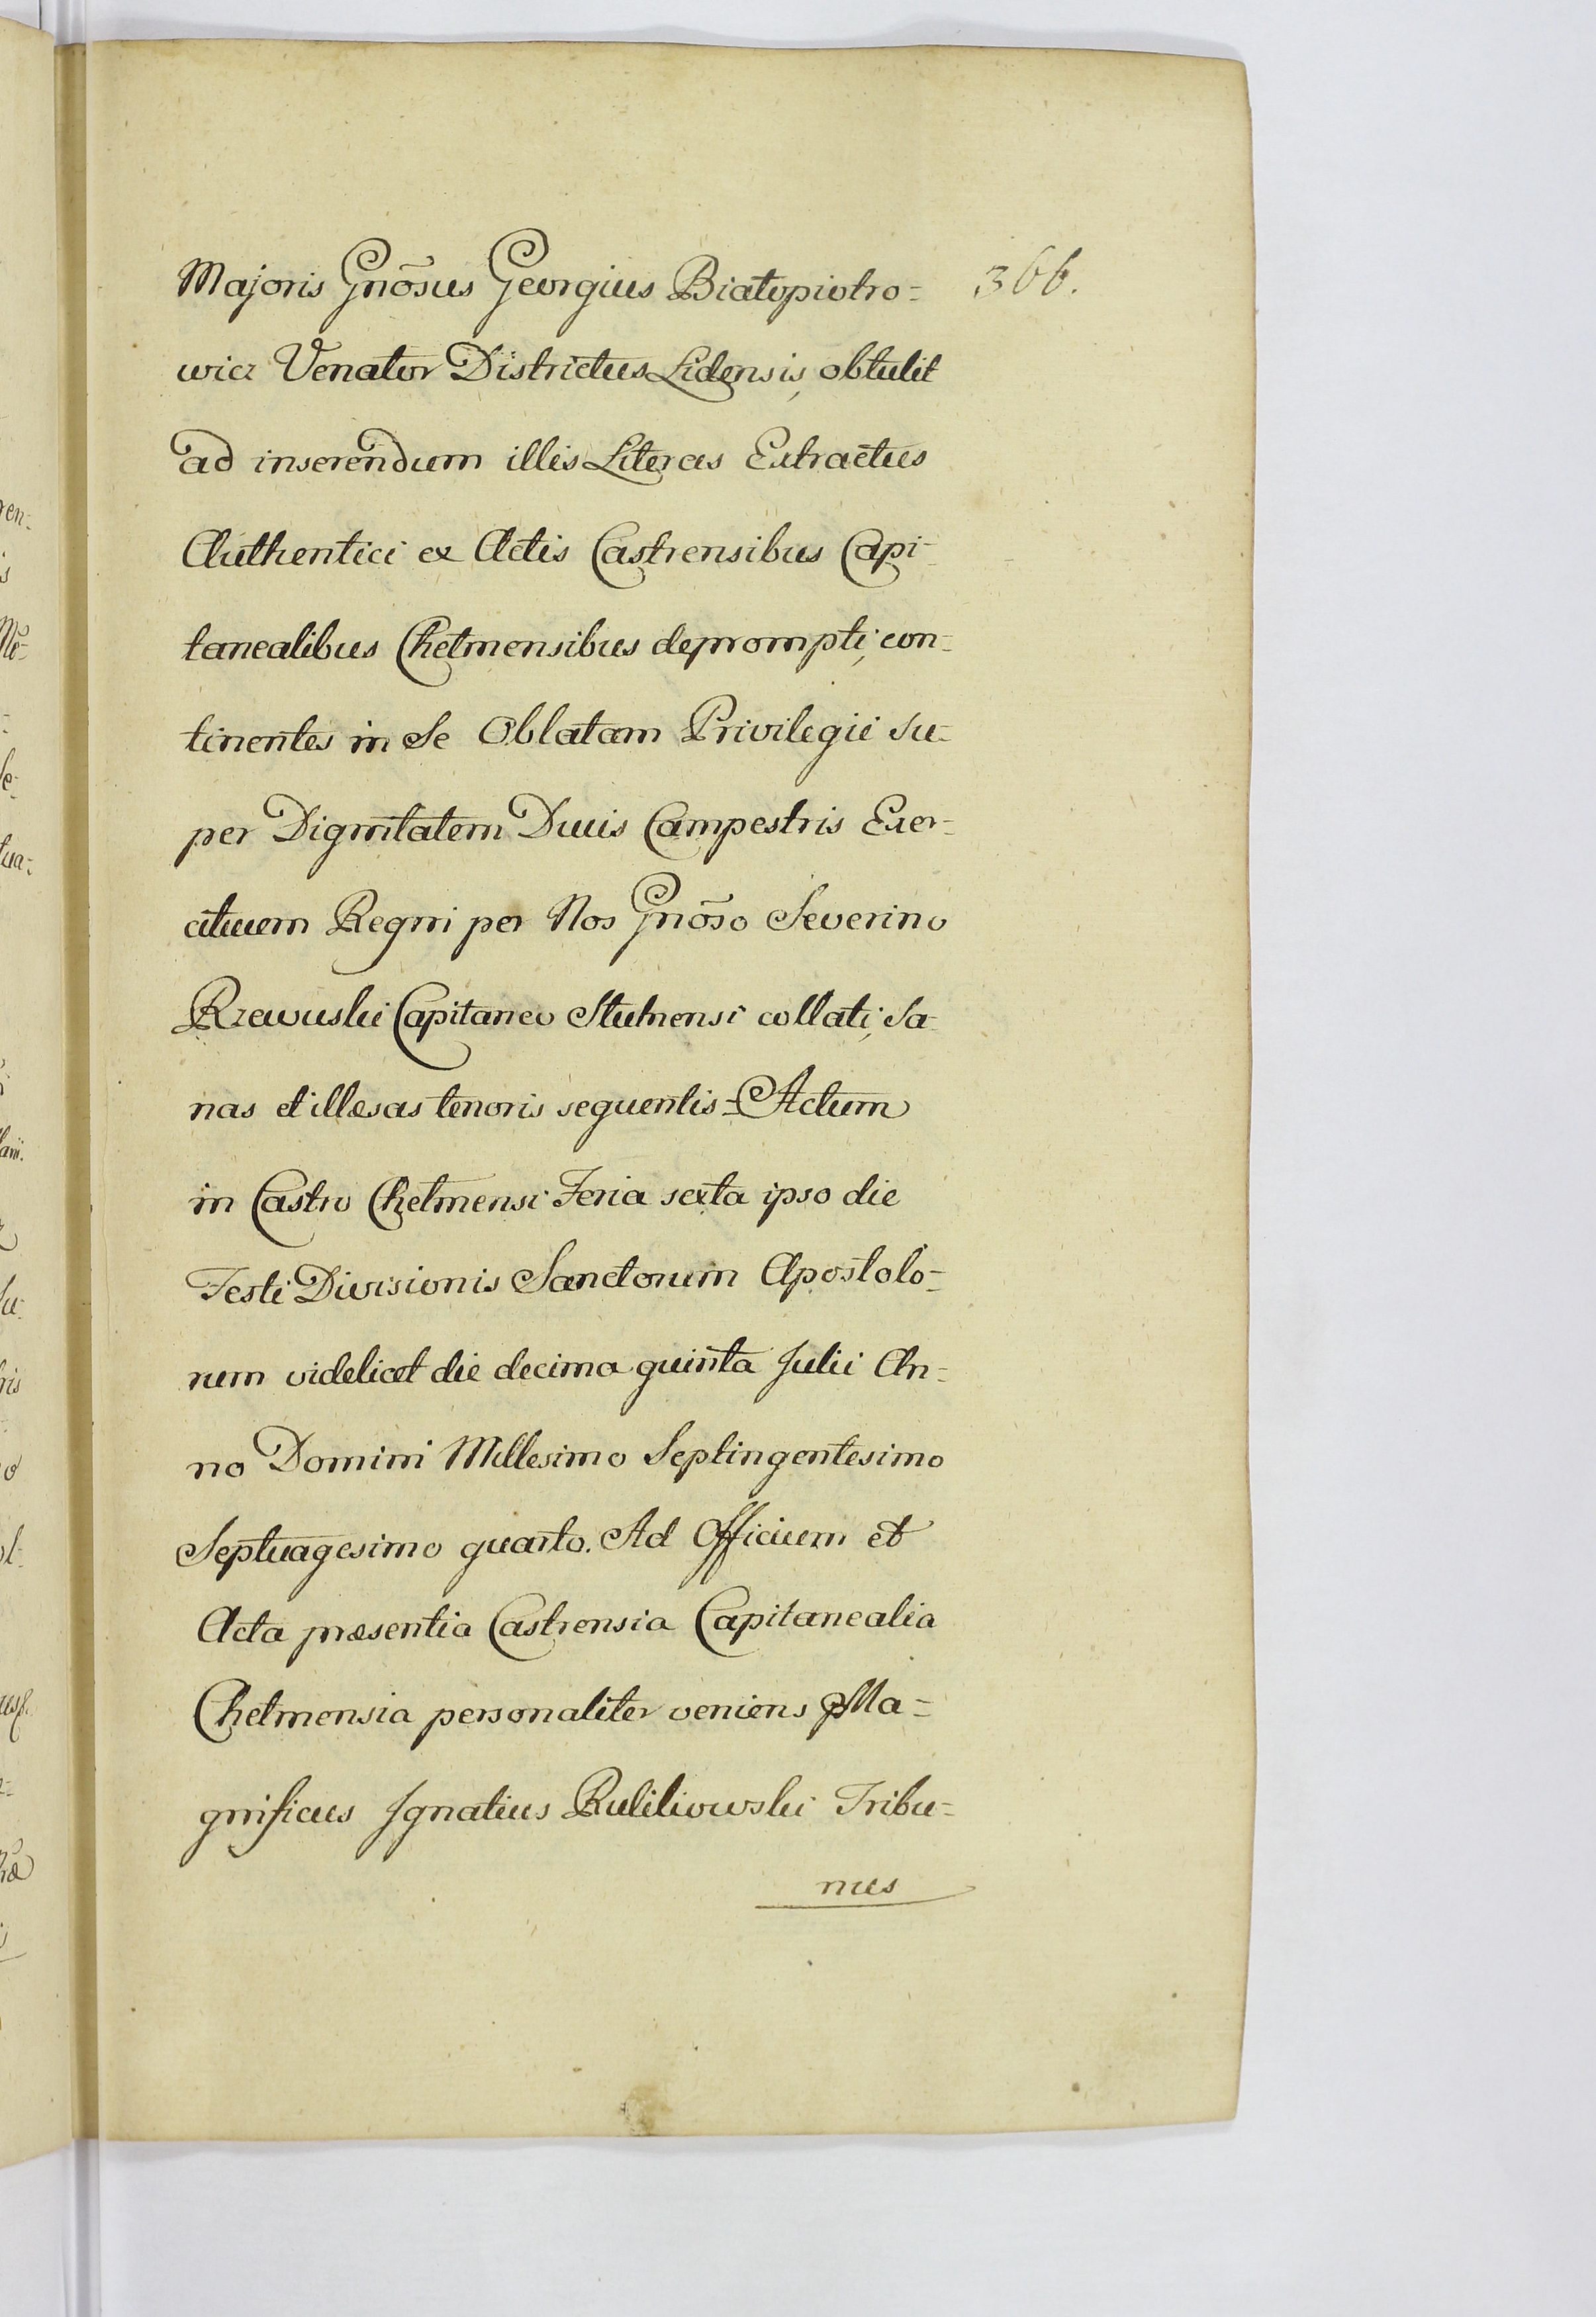 Majoris Gnõsus Georgius Białopiotro= 366.
wicz Venator Districtus Lidensis, obtulit
ad inserendum illis Literas Extractus
Authentici ex Actis Castrensibus Capi-
tanealibus Chełmensibus deprompti, con-
tinentes in Se Oblatam Privilegii su-
per Dignitatem Ducis Campestris Exer-
cituum Regni per Nos Gnõso Severino
Rzewuski Capitaneo Stulnensi collati, sa-
nas et illæsas tenoris sequentis = Actum
in Castro Chełmensi Feria sexta ipso die
Festi Divisionis Sanctorum Apostolo-
rum videlicet die decima quinta Julii An-
no Domini Millesimo Septingentesimo
Septuagesimo quarto. Ad Officium et
Acta præsentia Castrensia Capitanealia
Chełmensia personaliter veniens Ma=
gnificus Ignatius Kulikowski Tribu=
nus